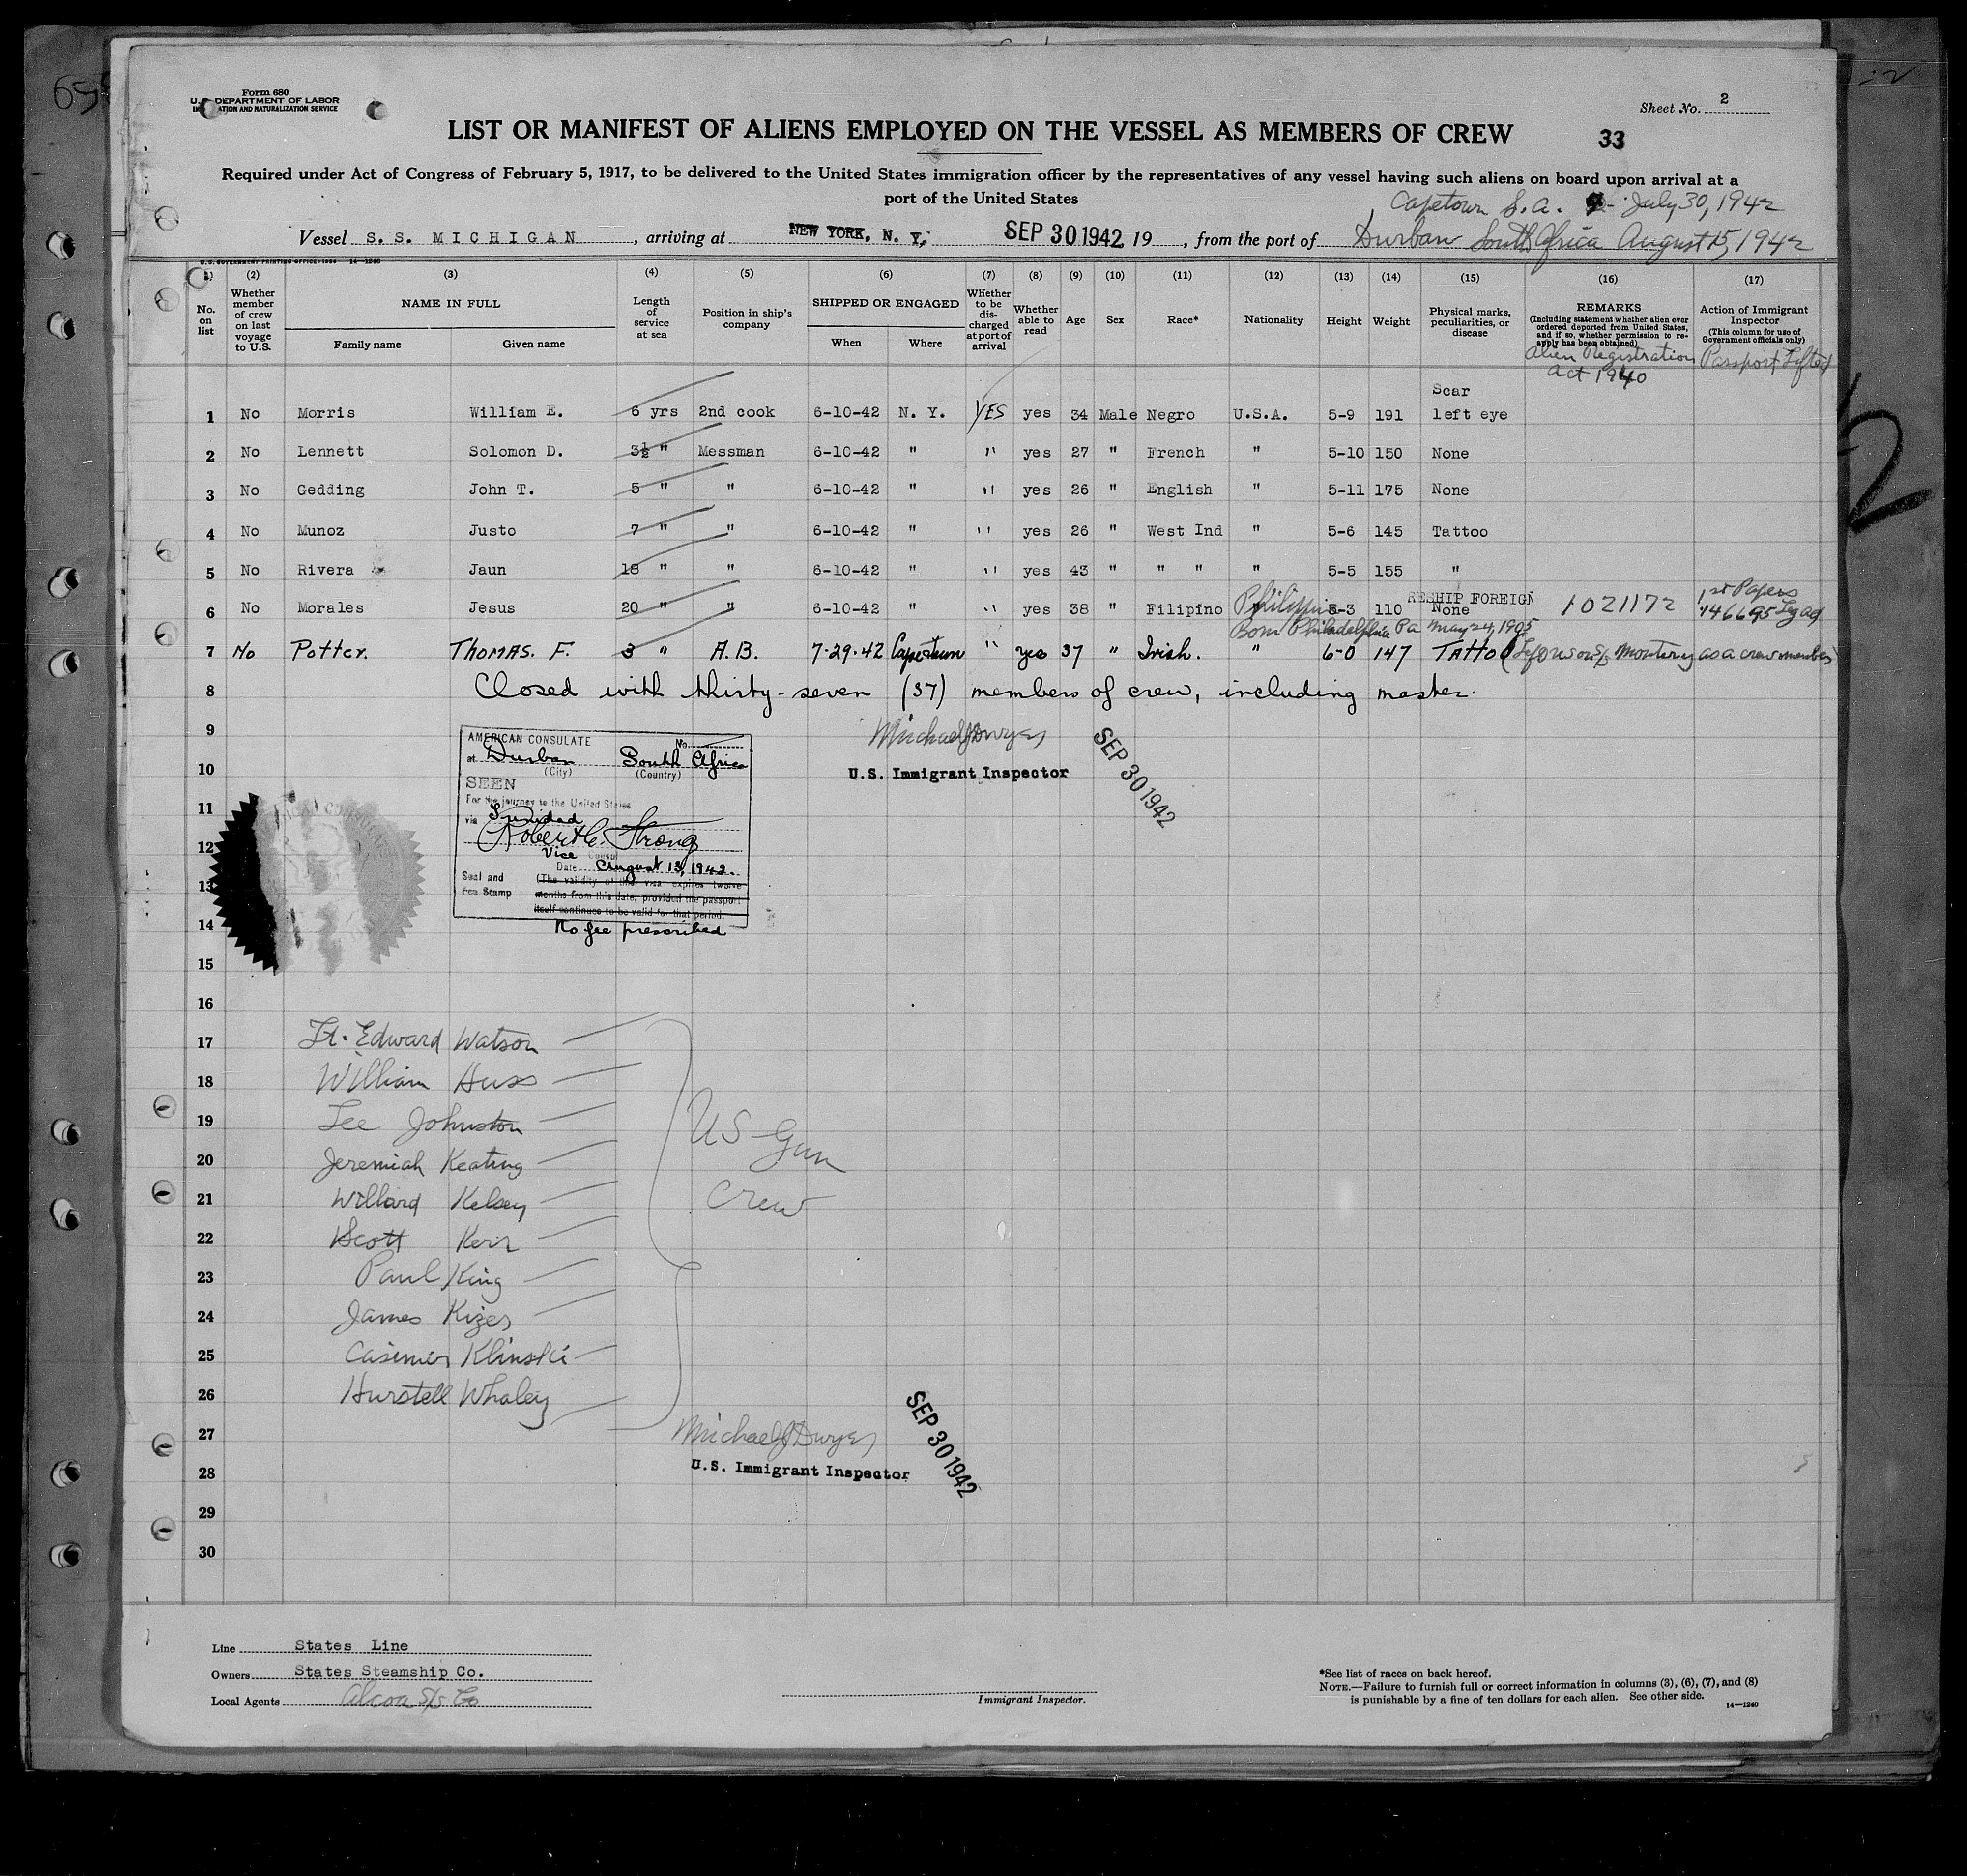 Form 680
U.S. DEPARTMENT OF LABOR
IMMIGRATION AND NATURALIZATION SERVICE
Sheet No. 2
LIST OR MANIFEST OF ALIENS EMPLOYED ON THE VESSEL AS MEMBERS OF CREW
33
Required under Act of Congress of February 5, 1917, to be delivered to the United States immigration officer by the representatives of any vessel having such aliens on board upon arrival at a
port of the United States
Capetown S.A. July 30, 1942
Vessel S. S. MICHIGAN, arriving at NEW YORK, N. Y. SEP 30 1942 19 , from the port of Durban South Africa August 15, 1942
U.S. GOVERNMENT PRINTING OFFICE: 1934 14—1240
(1) (2) (3) (4) (5) (6) (7) (8) (9) (10) (11) (12) (13) (14) (15) (16) (17)
No. on list
Whether member of crew on last voyage to U.S.
NAME IN FULL
Family name Given name
Length of service at sea
Position in ship's company
SHIPPED OR ENGAGED
When Where
Whether to be discharged at port of arrival
Whether able to read
Age
Sex
Race*
Nationality
Height
Weight
Physical marks, peculiarities, or disease
REMARKS
(Including statement whether alien ever ordered deported from United States, and if so, whether permission to re-apply has been obtained)
Action of Immigrant Inspector
(This column for use of Government officials only)
Alien Registration Act 1940
Passport Lifted
1 No Morris William E. 6 yrs 2nd cook 6-10-42 N. Y. YES yes 34 Male Negro U.S.A. 5-9 191 Scar left eye
2 No Lennett Solomon D. 3½ " Messman 6-10-42 " " yes 27 " French " 5-10 150 None
3 No Gedding John T. 5 " " 6-10-42 " " yes 26 " English " 5-11 175 None
4 No Munoz Justo 7 " " 6-10-42 " " yes 26 " West Ind " 5-6 145 Tattoo
5 No Rivera Jaun 18 " " 6-10-42 " " yes 43 " " " " 5-5 155 "
RESHIP FOREIGN
1st Papers
6 No Morales Jesus 20 " " 6-10-42 " " yes 38 " Filipino Philippine 5-3 110 None 1021172 146695
Born Philadelphia Pa May 24, 1905
7 No Potter. THOMAS. F. 3 " A.B. 7-29-42 Capetown " yes 37 " Irish. " 6-0 147 TATTO Monterey as a crew member)
8 Closed with thirty-seven (37) members of crew, including master.
9
Michael J Dwyer
10
U.S. Immigrant Inspector
SEP 30 1942
AMERICAN CONSULATE
No.
at Durban South Africa
(City) (Country)
SEEN
For the journey to the United States
via Trinidad
Robert C. Strong
Vice Consul
Date August 13, 1942.
Seal and Fee Stamp
(The validity of this visa expires twelve
months from this date, provided the passport
itself continues to be valid for that period.
No fee prescribed
11
12
13
14
15
16
17 Lt. Edward Watson
18 William Huss
19 Lee Johnston
20 Jeremiah Keating
21 Willard Kelsey
22 Scott Kerr
23 Paul King
24 James Kizer
25 Casimir Klinski
26 Hurstell Whaley
US Gun
Crew
27
Michael J Dwyer
28
U.S. Immigrant Inspector
SEP 30 1942
29
30
Line States Line
Owners States Steamship Co.
Local Agents Alcoa S/S Co
Immigrant Inspector.
*See list of races on back hereof.
NOTE.—Failure to furnish full or correct information in columns (3), (6), (7), and (8)
is punishable by a fine of ten dollars for each alien. See other side.
14—1240